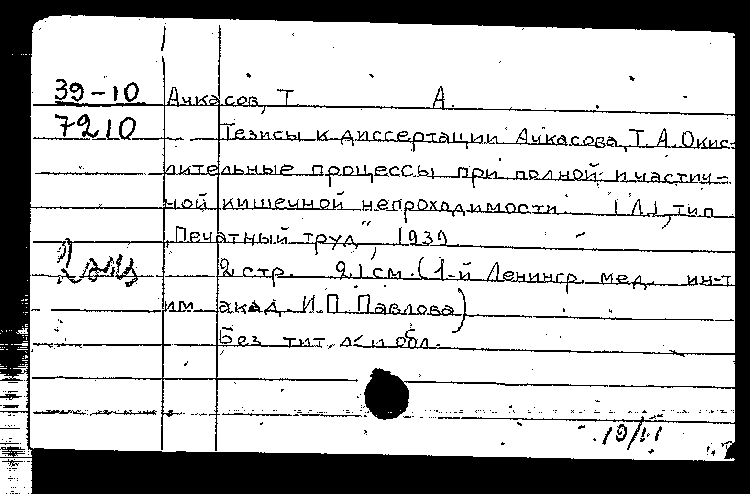 39-10 Ачкасов, Т. А.
7210 Тезисы к диссертации Ачкасова, Т. А. Окис-
лительные процессы при полной и частич-
ной кишечной непроходимости. [Л.], тип.
„Печатный труд", 1939
2 стр. 21 см. (1-й Ленингр. мед. ин-т
2 экз
им. акад. И. П. Павлова)
Без тит. л. и обл.